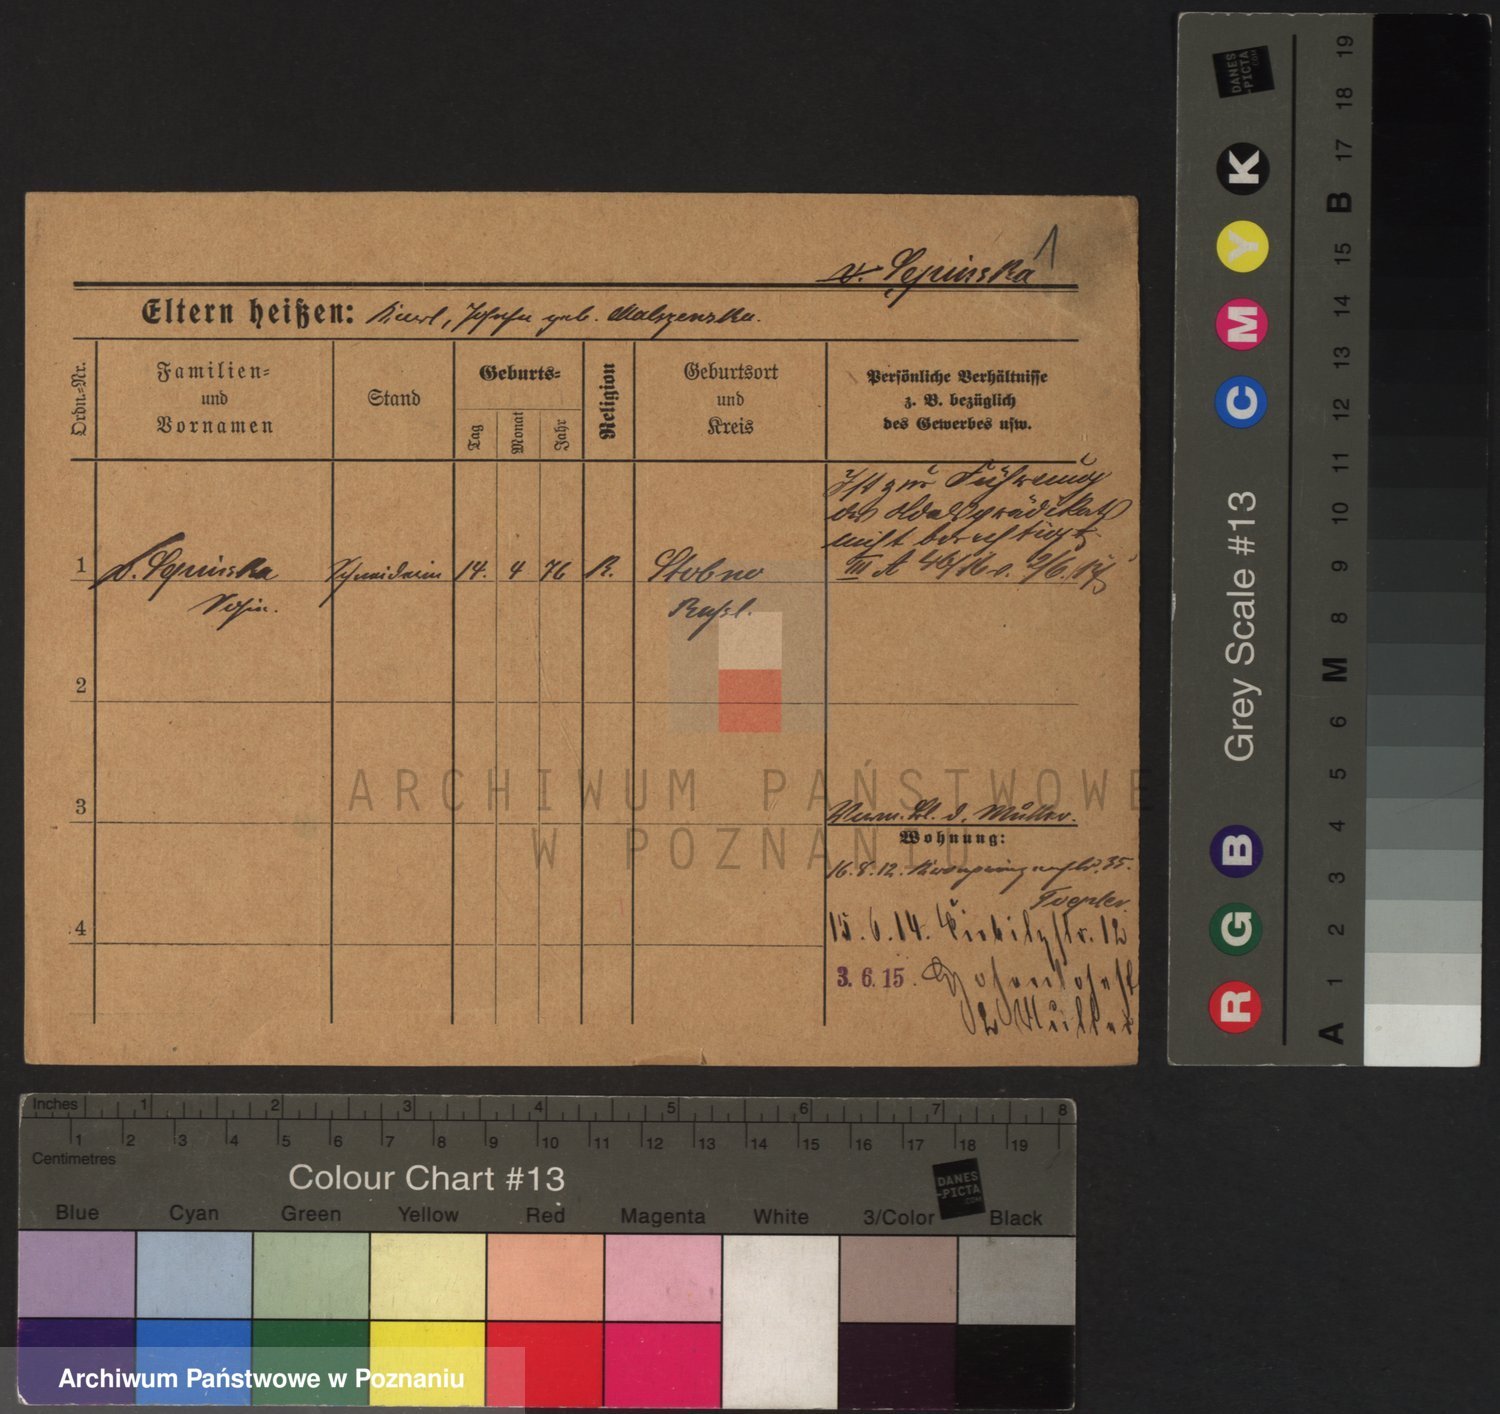 1
v. Lepinska
Eltern heißen: Karl, Josefa geb. Malszenska.
Ordn.-Nr.
Familien-
und
Vornamen
Stand
Geburts-
Tag
Monat
Jahr
Religion
Geburtsort
und
Kreis
Persönliche Verhältnisse
z. B. bezüglich
des Gewerbes usw.
Ist zur Führung
des Adelsprädikats
nicht berechtigt
1
v. Lepinska
Schneiderin
14. 4 76
K.
Stobno
2
3
4
d. Müller.
Wohnung:
16.8.12. 35.
15.6.14. 12
3. 6. 15.
b Müller
ARCHIWUM PAŃSTWOWE
W POZNANIU
Grey Scale #13
DANES
-PICTA
.COM
K
Y
M
C
B
G
R
19
18
17
B
15
14
13
12
11
10
9
8
M
6
5
4
3
2
1
A
Inches 1 2 3 4 5 6 7 8
1 2 3 4 5 6 7 8 9 10 11 12 13 14 15 16 17 18 19
Centimetres
Colour Chart #13
DANES
-PICTA
.COM
Blue Cyan Green Yellow Red Magenta White 3/Color Black
Archiwum Państwowe w Poznaniu